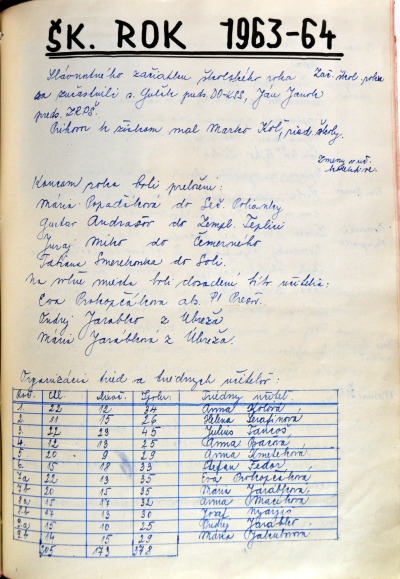 ŠK. ROK 1963-64
Slávnostného začiatku školského roka
Zač. škol. roka
sa zúčastnili s. Gulik preds. DO-KSS, Ján Janok
preds. ZRPŠ.
Príhovor k žiakom mal Marko Koľ, riad. školy.
Zmeny v uč.
Koncom roka boli preložení:
Mária Popaďáková do Sež. Polianky
Gustav Andrašov do Zempl. Teplice
Juraj Miho do Čemerného
Tatiana Smerekovska do Soli.
Na voľné miesta boli dosadení títo učitelia:
Eva Prokopčáková ab. PI Prešov.
Ondrej Jarabko z Ubreža
Mária Jarabková z Úbreža.
Organizácia tried a triednych učiteľov:
Roč. Chl. Dievč. Spolu. Triedny učiteľ.
1. 22 12 34 Anna Kotová
2. 11 15 26 Helena Serafínová
3. 22 23 45 Július Jančos
4. 12 13 25 Anna Bačová
5. 20 9 29 Anna Kmeteková
6. 15 18 33 Štefan Fedor
7a 22 13 35 Eva Prokopčáková
7b 20 15 35 Mária Jarabková
8a 15 17 32 Anna Macíková
8b 17 13 30 Jozef
9.a 15 10 25 Ondrej Jarabko
9b 14 15 29 Mária Jakubová
205 173 378